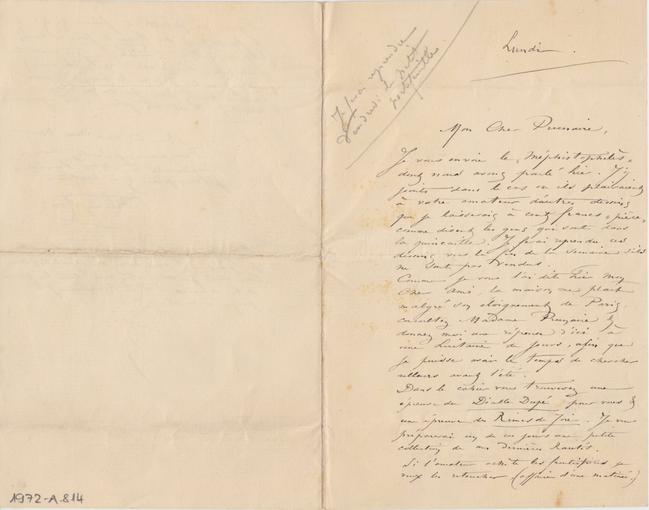 Je ferai reprendre
Vendredi le petit
portefeuille.
Lundi.
Mon Cher Prunaire,
Je vous envoie le Méphistophélès
dont nous avons parlé hier. J'y
joints dans le cas où ils plairaient
à votre amateur d'autres dessins
que je laisserais à cent francs "pièce"
comme disent les gens qui sont dans
la quincaille. Je ferai reprendre ces
dessins vers la fin de la semaine s'ils
ne sont pas vendus.
Comme je vous l'ai dit hier mon
Cher Ami, la maison me plait
malgré son éloignement de Paris,
consultez Madame Prunaire &
donnez moi une réponse d'ici à
une huitaine de jours, afin que
je puisse avoir le temps de chercher
ailleurs avant l'été.
Dans le cahier vous trouverez une
épreuve du Diable Dupé pour vous &
une épreuve des Rimes de Joie. Je vous
préparerai un de ces jours une petite
collection de mes dernières
Si l'amateur achète les je
veux les retoucher (affaire d'une matinée)
1972-A.814